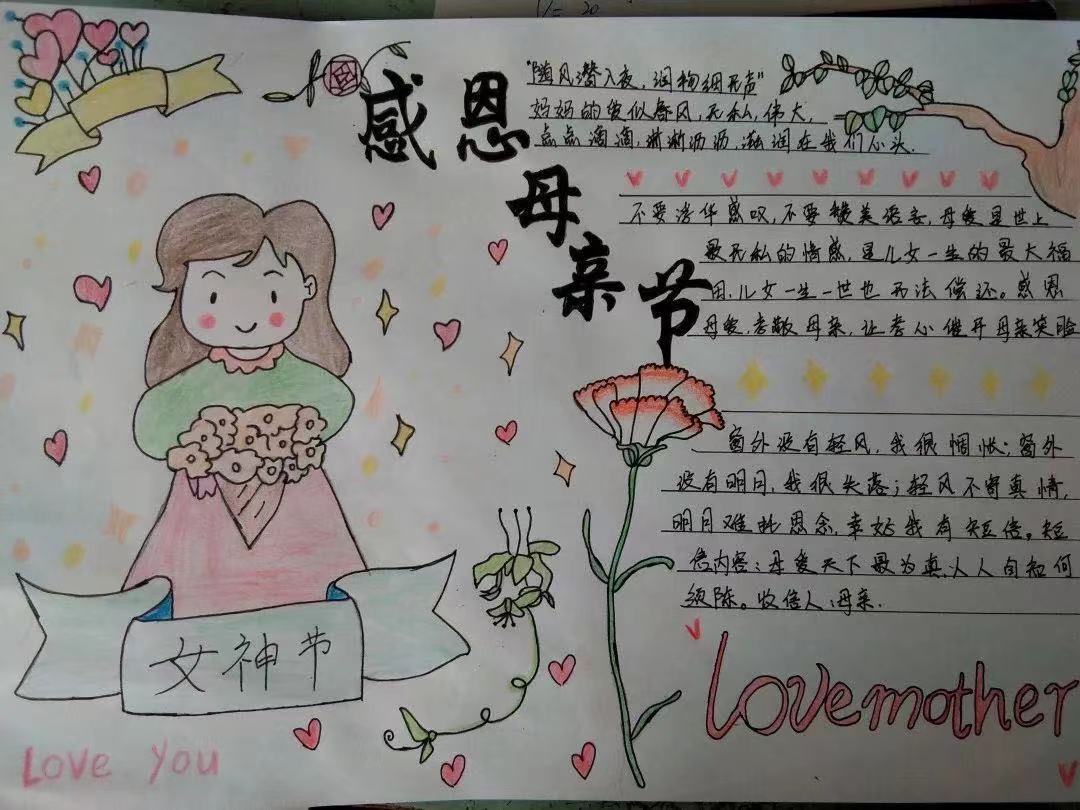 感恩
母
亲
节
"随风潜入夜,润物细无声"
妈妈的爱似春风,无私,伟大,
点点滴滴,淅淅沥沥,滋润在我们心头.
不要浮华感叹,不要赞美语言,母爱是世上
最无私的情感,是儿女一生的最大福
田,儿女一生一世也无法偿还。感恩
母爱,孝敬母亲,让孝心催开母亲笑脸
窗外没有轻风,我很惆怅;窗外
没有明月,我很失落;轻风不寄真情,
明月难耐思念,幸好我有短信。短
信内容:母爱天下最为真,人人自知何
须陈。收信人:母亲.
女神节
Love You
Love mother